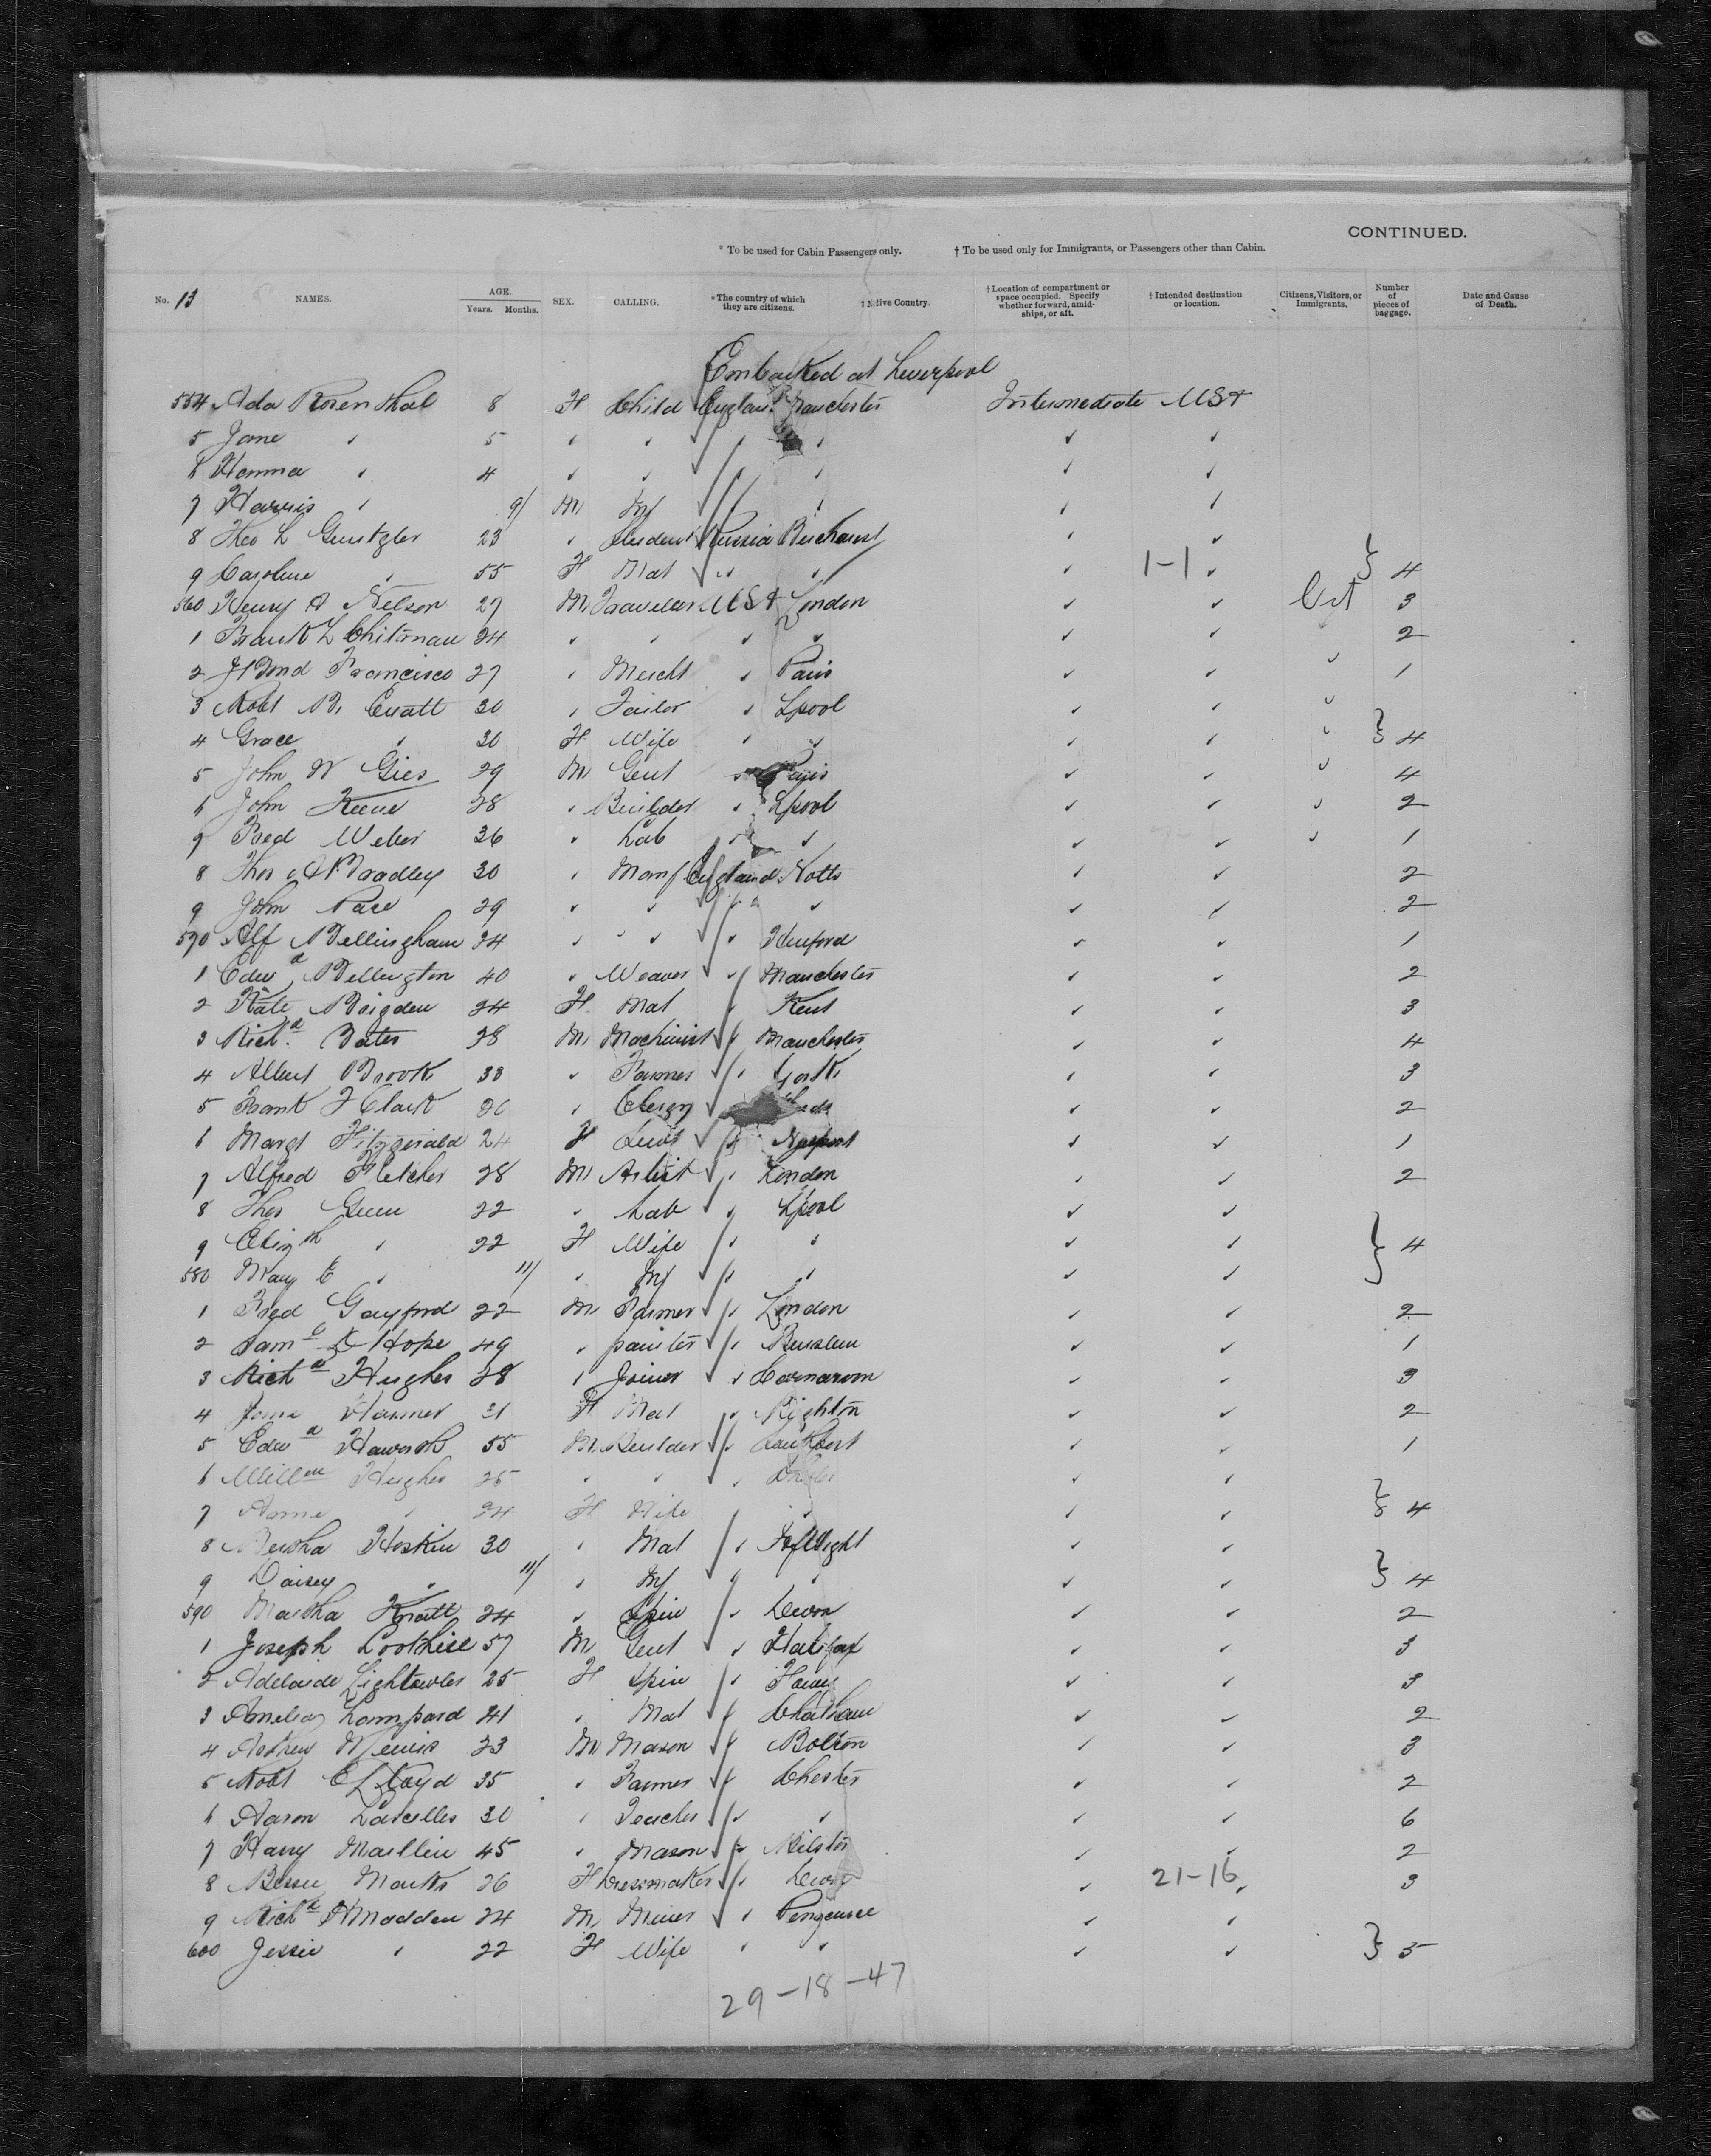 CONTINUED.
* To be used for Cabin Passengers only. † To be used only for Immigrants, or Passengers other than Cabin.
No. 13 NAMES. AGE. Years. Months. SEX. CALLING. *The country of which they are citizens. † Native Country. †Location of compartment or space occupied. Specify whether forward, amidships, or aft. †Intended destination or location. Citizens, Visitors, or Immigrants. Number of pieces of baggage. Date and Cause of Death.
Embarked at Liverpool
554 Ada Rosenthal 8 F Child England Manchester Intermediate USA
5 Jane " 5 " " " " " "
6 Hanna " 4 " " " " " "
7 Harris " 9/ M Inf " " " "
8 Theo L Guntzler 23 " Student Russia " "
9 Caroline " 55 F Mat " " " 1-1 " } 4
560 Henry A Nelson 27 M Traveller USA London " " Cit 3
1 Frank L 24 " " " " " " " 2
2 J Bond Francisco 27 " Mercht " Paris " " " 1
3 Robt 30 " Tailor " Lpool " " "
4 Grace " 30 F Wife " " " " " } 4
5 John W Gies 29 M Gent " Paris " " " 4
6 John Keene 28 " Builder " Lpool " " " 2
7 Fred Weber 36 " Lab " " " " " 1
8 Thos A Bradley 30 " Manf England Notts " " 2
9 John Pace 29 " " " " " " 2
570 Alf Bellingham 24 " " " Hereford " " 1
1 Edwd Bellington 40 " Weaver " Manchester " " 2
2 Kate Brigden 24 F Mat " Kent " " 3
3 Richd Bates 28 M Machinist " Manchester " " 4
4 Albert Brook 33 " Farmer " York " " 3
5 Frank F Clark 26 " Clergy Leeds " " 2
6 Margt Fitzgerald 24 F " Newport " " 1
7 Alfred Fletcher 28 M Artist " London " " 2
8 Thos Gunn 22 " Lab " Lpool " "
9 Elizth " 22 F Wife " " " " } 4
580 Mary E " 11/ " Inf " " " "
1 Fred Gayford 22 M Farmer " London " " 2
2 Saml E Hope 49 " painter " Burslem " " 1
3 Richd Hughes 28 " Joiner " Carnarvon " " 3
4 Jane Harmer 31 F Mat " " " 2
5 Edwd Haworth 55 M Builder " " " 1
6 Willm Hughes 25 " " " " "
7 Annie " 24 F Wife " " " } 4
8 Hoskin 30 " Mat " I of Wight " "
9 Daisey " 11/ " Inf " " " " } 4
590 Martha 24 " Spin " Devon " " 2
1 Joseph 57 M Gent " Halifax " " 3
2 Adelaide Lightowler 25 F Spin " " " 3
3 Amelia Lampard 41 " Mat " Chatham " " 2
4 Andrew 23 M Mason " Bolton " " 3
5 Robt E Lloyd 35 " Farmer " Chester " " 2
6 Aaron Lascelles 30 " Teacher " " " " 6
7 Harry 45 " Mason " " " 2
8 Bessie Monks 26 F Dressmaker " Devon " 21-16 " 3
9 Richd H Madden 24 M Miner " " "
600 Jessie " 22 F Wife " " " " } 5
29-18-47